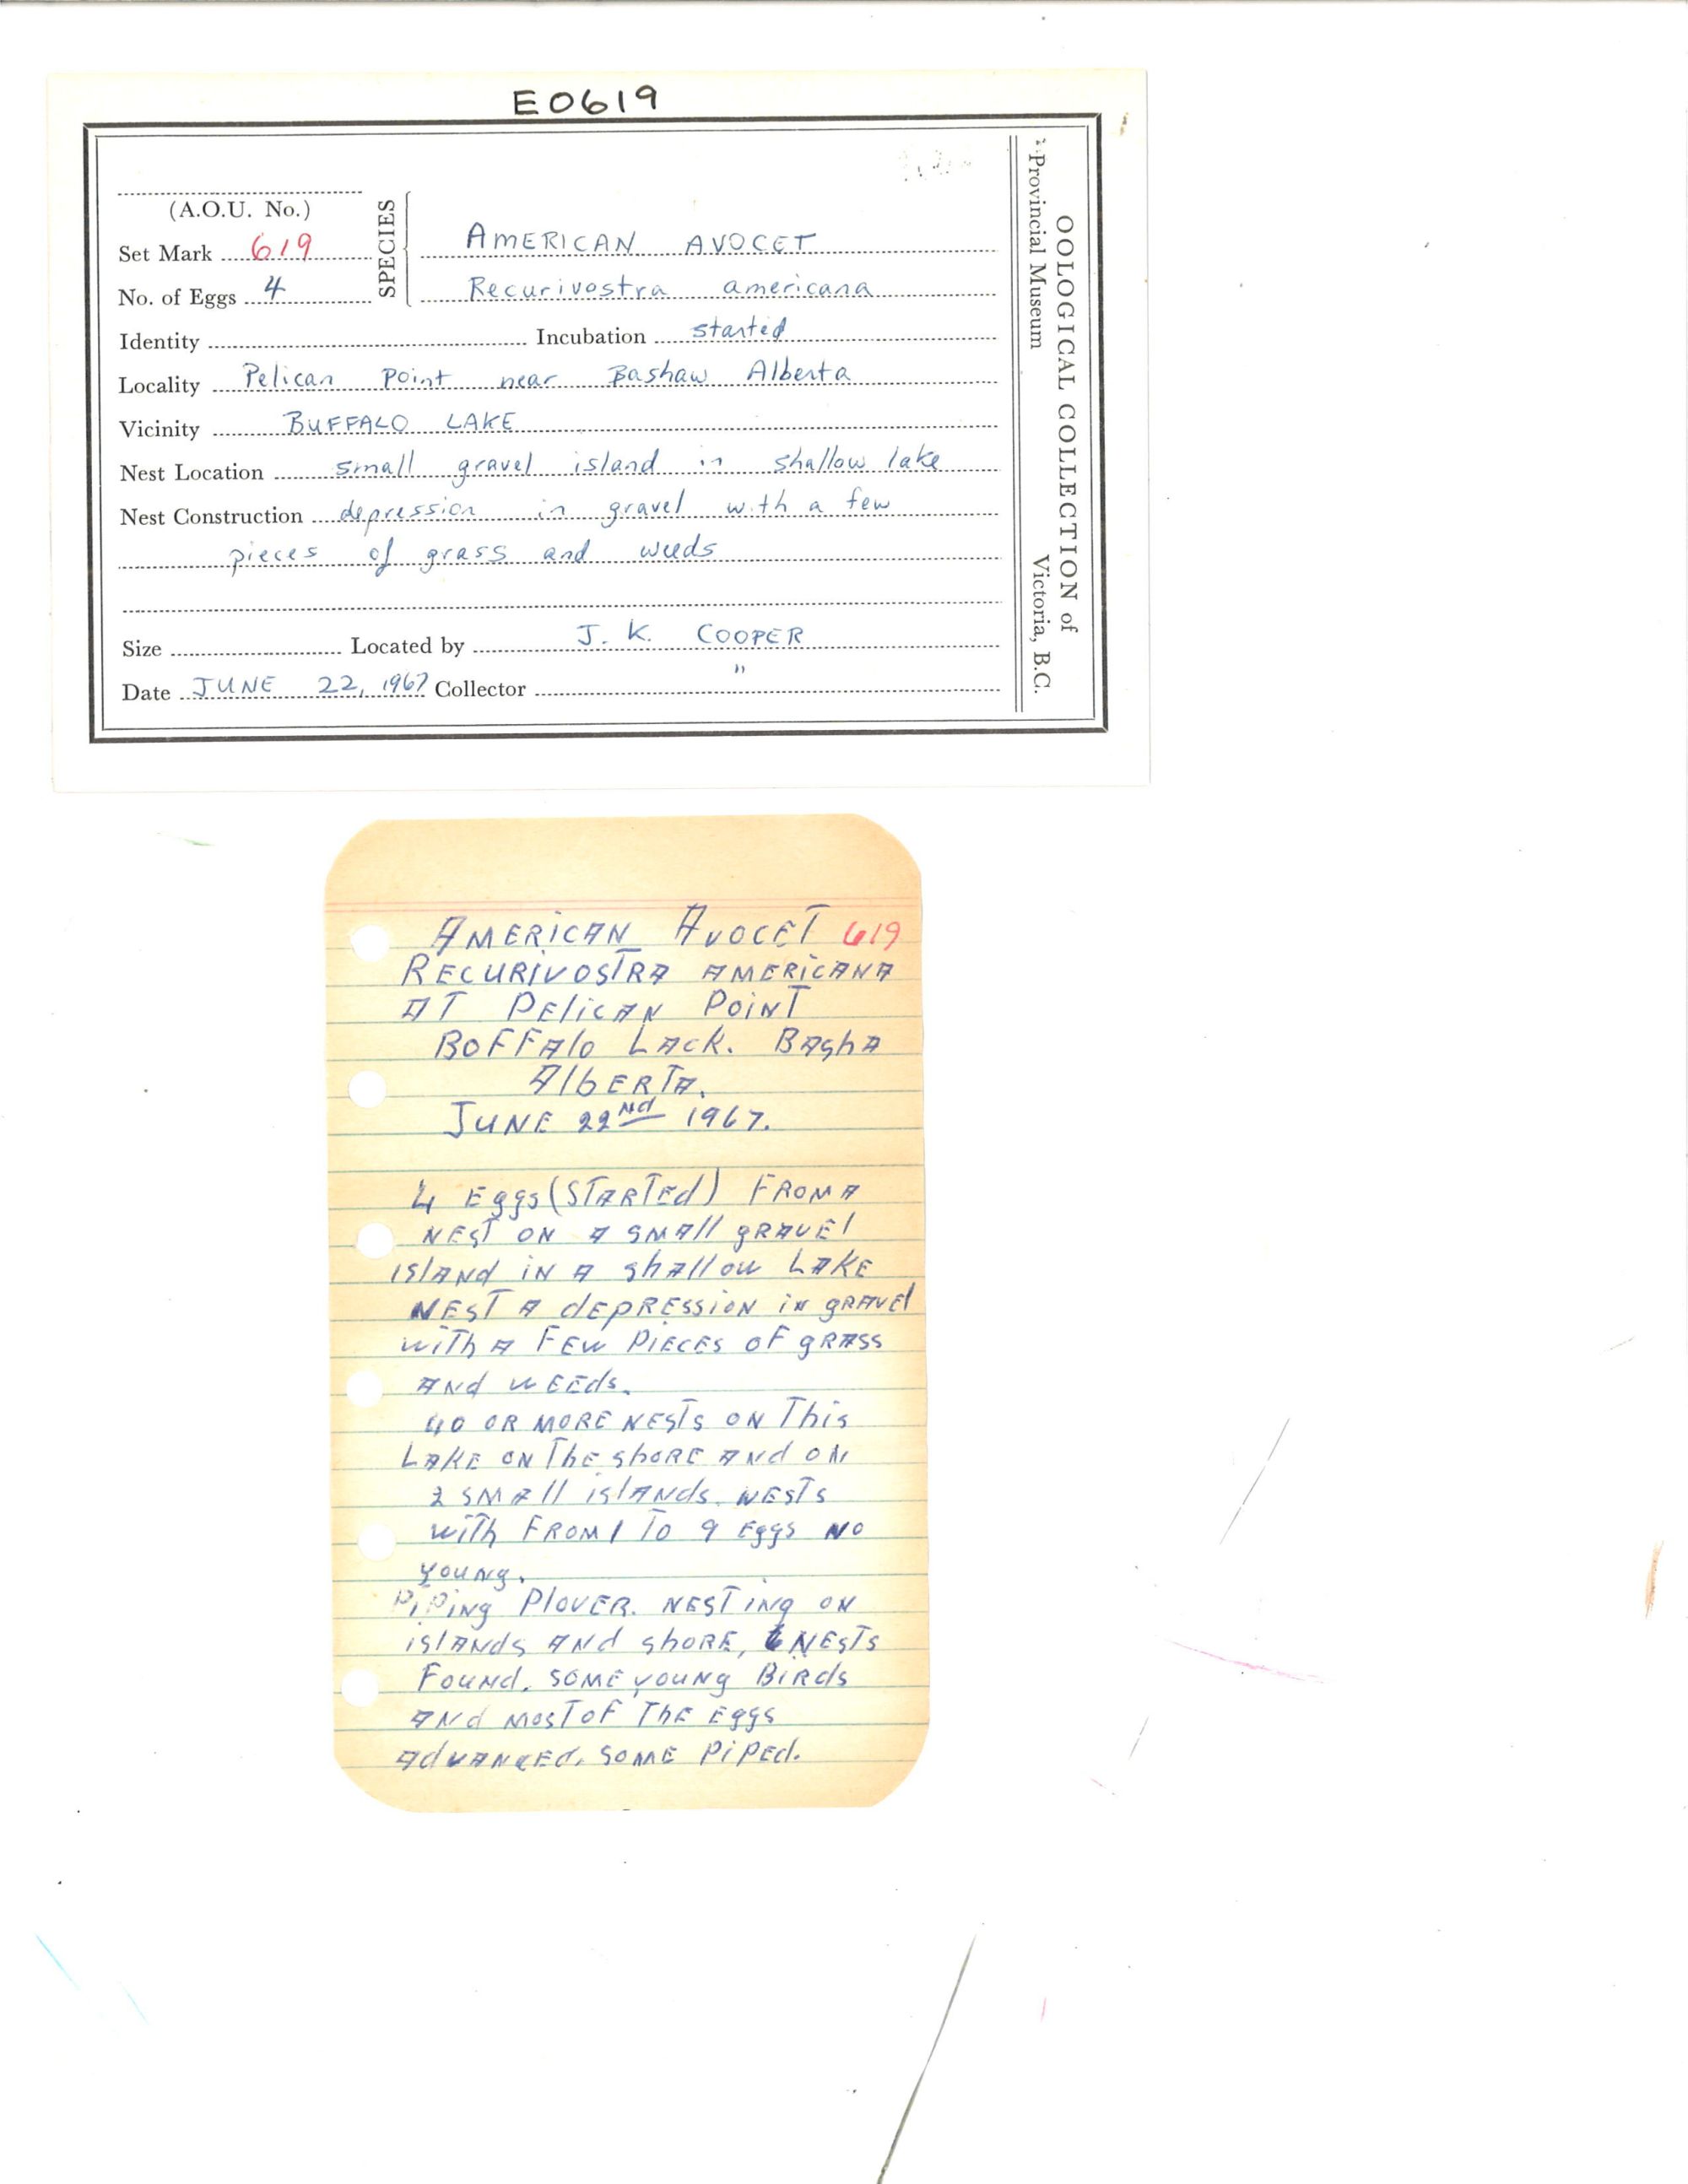 E0619
(A.O.U. No.)
Set Mark 619
No. of Eggs 4
SPECIES
AMERICAN AVOCET
Recurivostra americana
Identity Incubation started
Locality Pelican Point near Bashaw Alberta
Vicinity BUFFALO LAKE
Nest Location small gravel island in shallow lake
Nest Construction depression in gravel with a few
pieces of grass and weeds
Size Located by J. K. COOPER
Date JUNE 22, 1967 Collector "
OOLOGICAL COLLECTION of
Provincial Museum Victoria, B.C.
AMERICAN AVOCET 619
RECURIVOSTRA AMERICANA
AT PElicAN POiNT
BOFFAlo LAck. BAshA
AlbERTA.
JUNE 22Nd 1967.
4 Eggs (STARTEd) FROM A
NEST ON A SMAll gRAVEl
islANd iN A shAllow LAKE
NEST A dEPRESSiON iN gRAVEl
wiTh A FEW PiECES OF gRASS
ANd WEEds.
40 OR MORE NESTS ON This
LAKE ON ThE shORE ANd ON
2 SMAll islANds. NESTS
wiTh FROM 1 TO 9 Eggs NO
YOUNg.
PiPiNg PlOVER. NESTiNg ON
islANds ANd shORE, 6 NESTS
FOUNd. SOME YOUNg BiRds
ANd MOST OF ThE Eggs
AdVANCEd. SOME PiPEd.